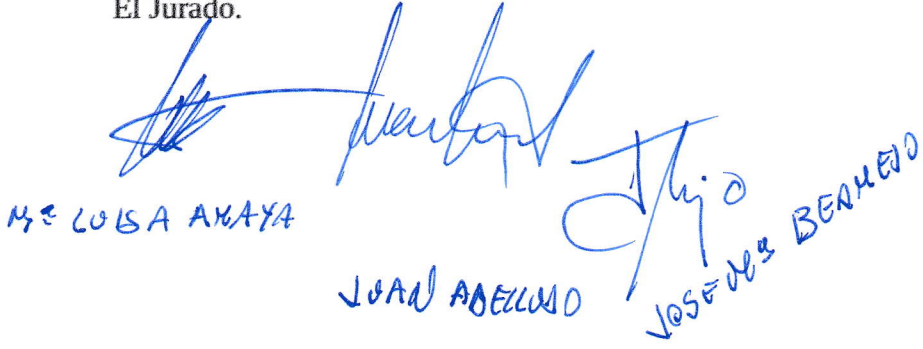 El Jurado.
Mª LUISA AMAYA
JUAN
JOSE Mª BERMEJO